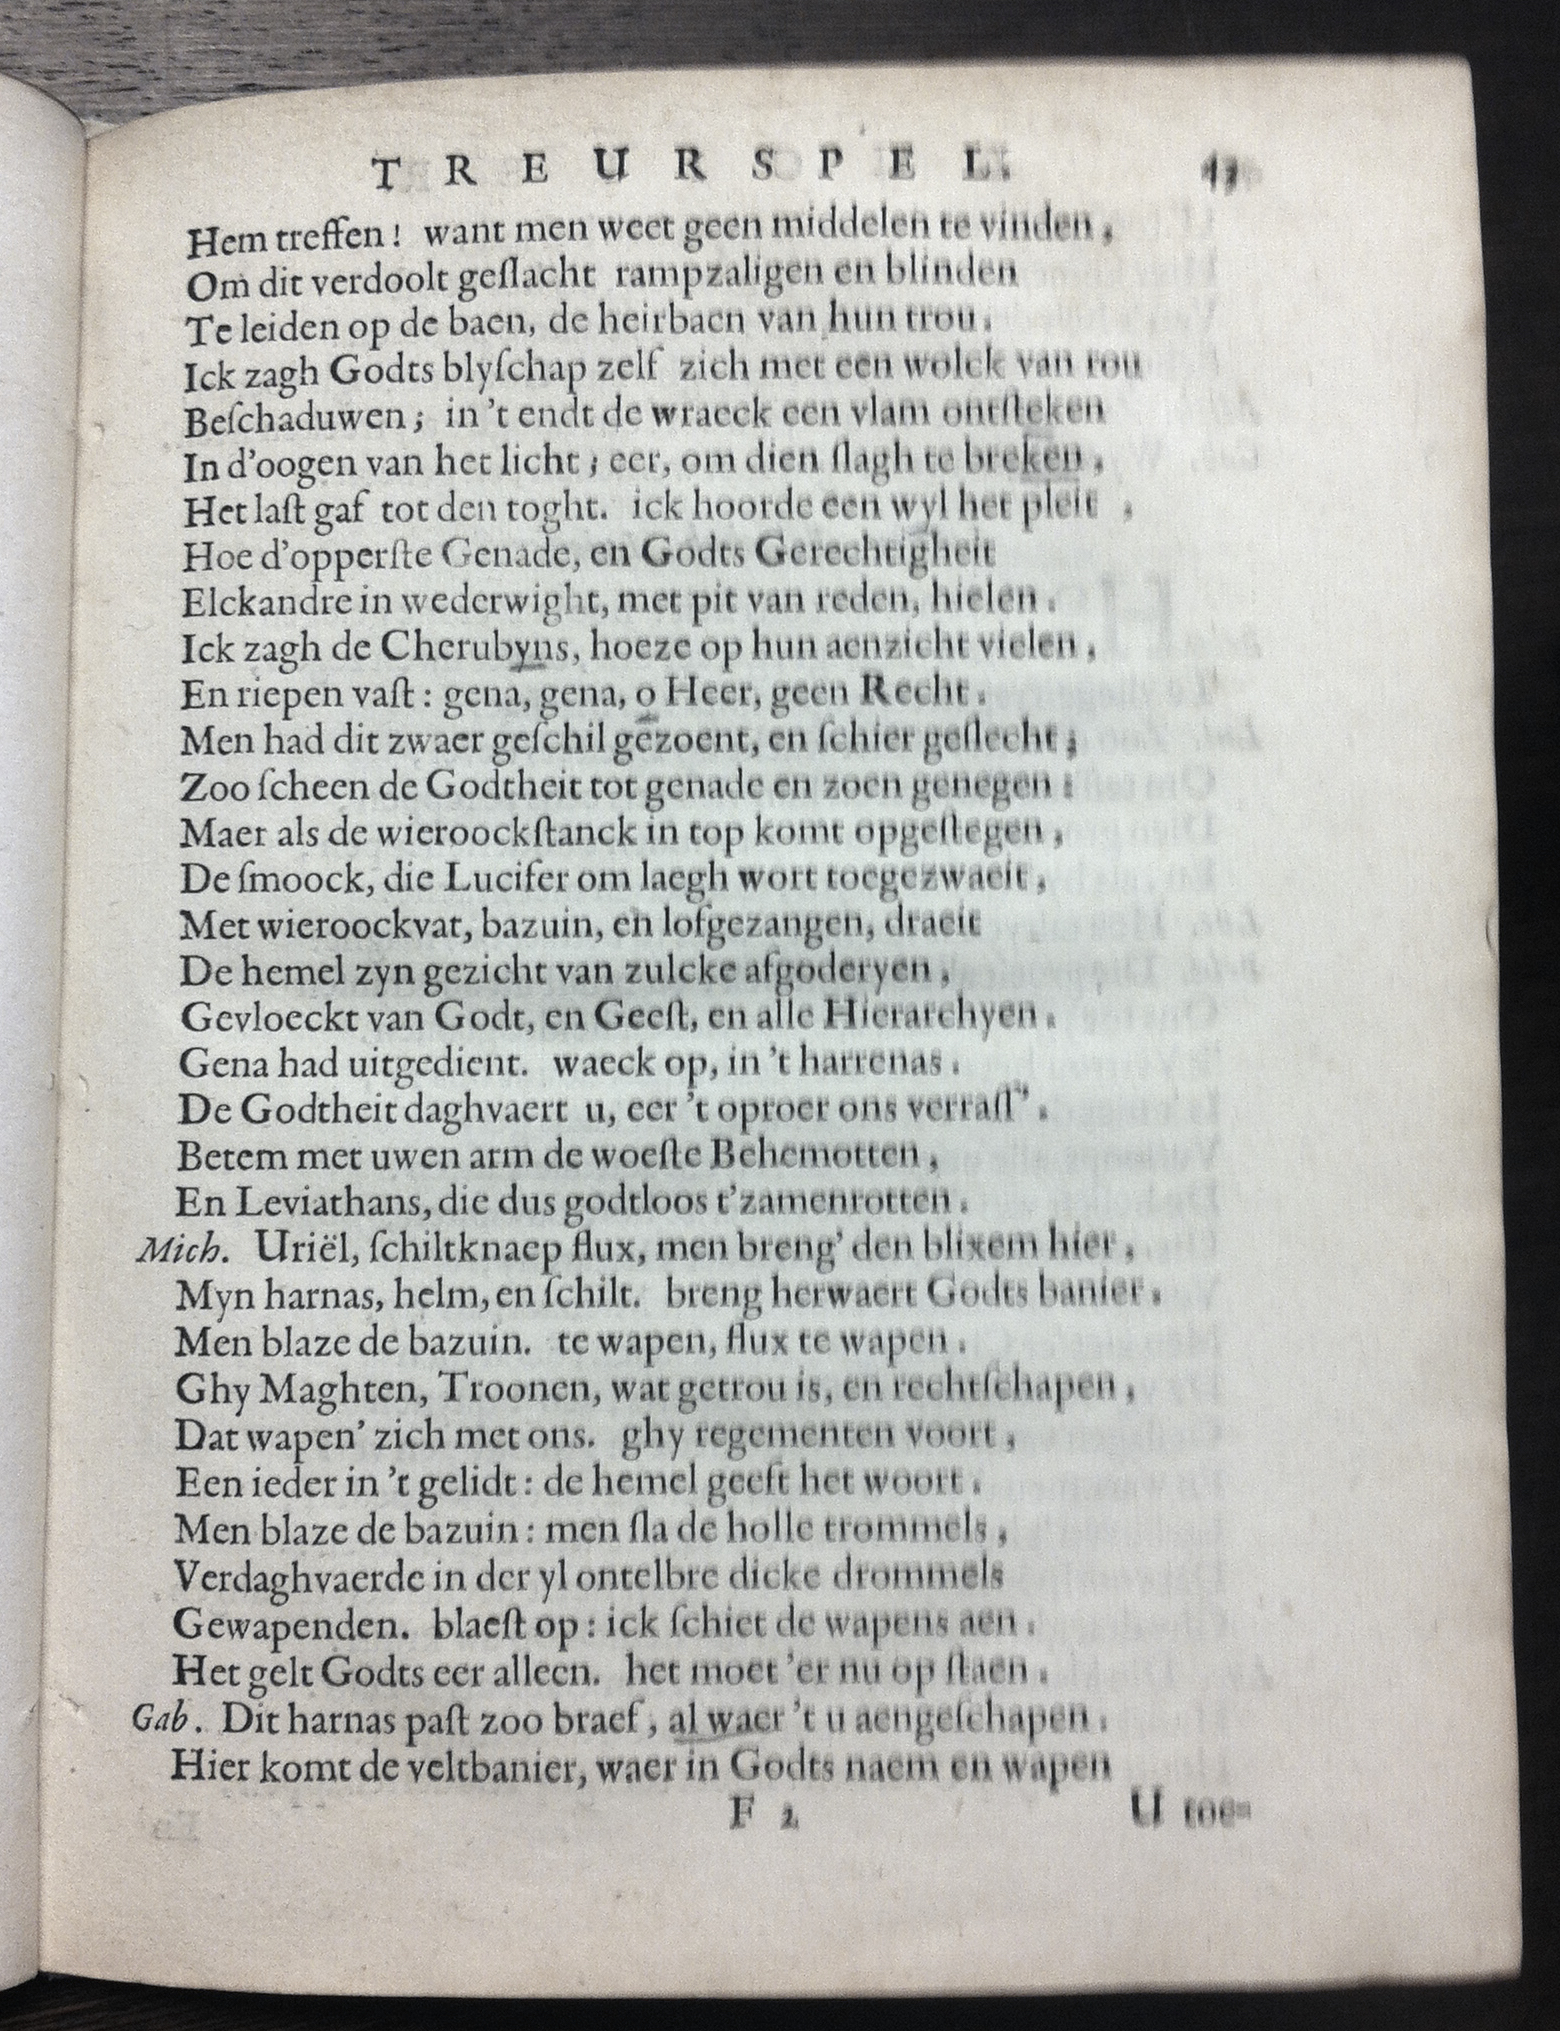 TREURSPEL.
Hem treffen! want men weet geen middelen te vinden,
Om dit verdoolt geſlacht rampzaligen en blinden
Te leiden op de baen, de heirbaen van hun trou.
Ick zagh Godts blyſchap zelf zich met een wolck van rou
Beſchaduwen; in 't endt de wraeck een vlam ontſteken
In d'oogen van het licht; eer, om dien ſlagh te breken,
Het laſt gaf tot den toght. ick hoorde een wyl het pleit,
Hoe d'opperſte Genade, en Godts Gerechtigheit
Elckandre in wederwight, met pit van reden, hielen.
Ick zagh de Cherubyns, hoeze op hun aenzicht vielen,
En riepen vaſt: gena, gena, o Heer, geen Recht.
Men had dit zwaer geſchil gezoent, en ſchier geſlecht;
Zoo ſcheen de Godtheit tot genade en zoen genegen:
Maer als de wieroockſtanck in top komt opgeſtegen,
De ſmoock, die Lucifer om laegh wort toegezwaeit,
Met wieroockvat, bazuin, en lofgezangen, draeit
De hemel zyn gezicht van zulcke afgoderyen,
Gevloeckt van Godt, en Geeſt, en alle Hierarchyen.
Gena had uitgedient. waeck op, in 't harrenas.
De Godtheit daghvaert u, eer 't oproer ons verraſſ'.
Betem met uwen arm de woeſte Behemotten,
En Leviathans, die dus godtloos t'zamenrotten.
Mich. Uriël, ſchiltknaep flux, men breng' den blixem hier,
Myn harnas, helm, en ſchilt. breng herwaert Godts banier.
Men blaze de bazuin. te wapen, flux te wapen.
Ghy Maghten, Troonen, wat getrou is, en rechtſchapen,
Dat wapen' zich met ons. ghy regementen voort,
Een ieder in 't gelidt: de hemel geeft het woort.
Men blaze de bazuin: men ſla de holle trommels,
Verdaghvaerde in der yl ontelbre dicke drommels
Gewapenden. blaeſt op: ick ſchiet de wapens aen.
Het gelt Godts eer alleen. het moet 'er nu op ſtaen.
Gab. Dit harnas paſt zoo braef, al waer 't u aengeſchapen.
Hier komt de veltbanier, waer in Godts naem en wapen
F 2 U toe-